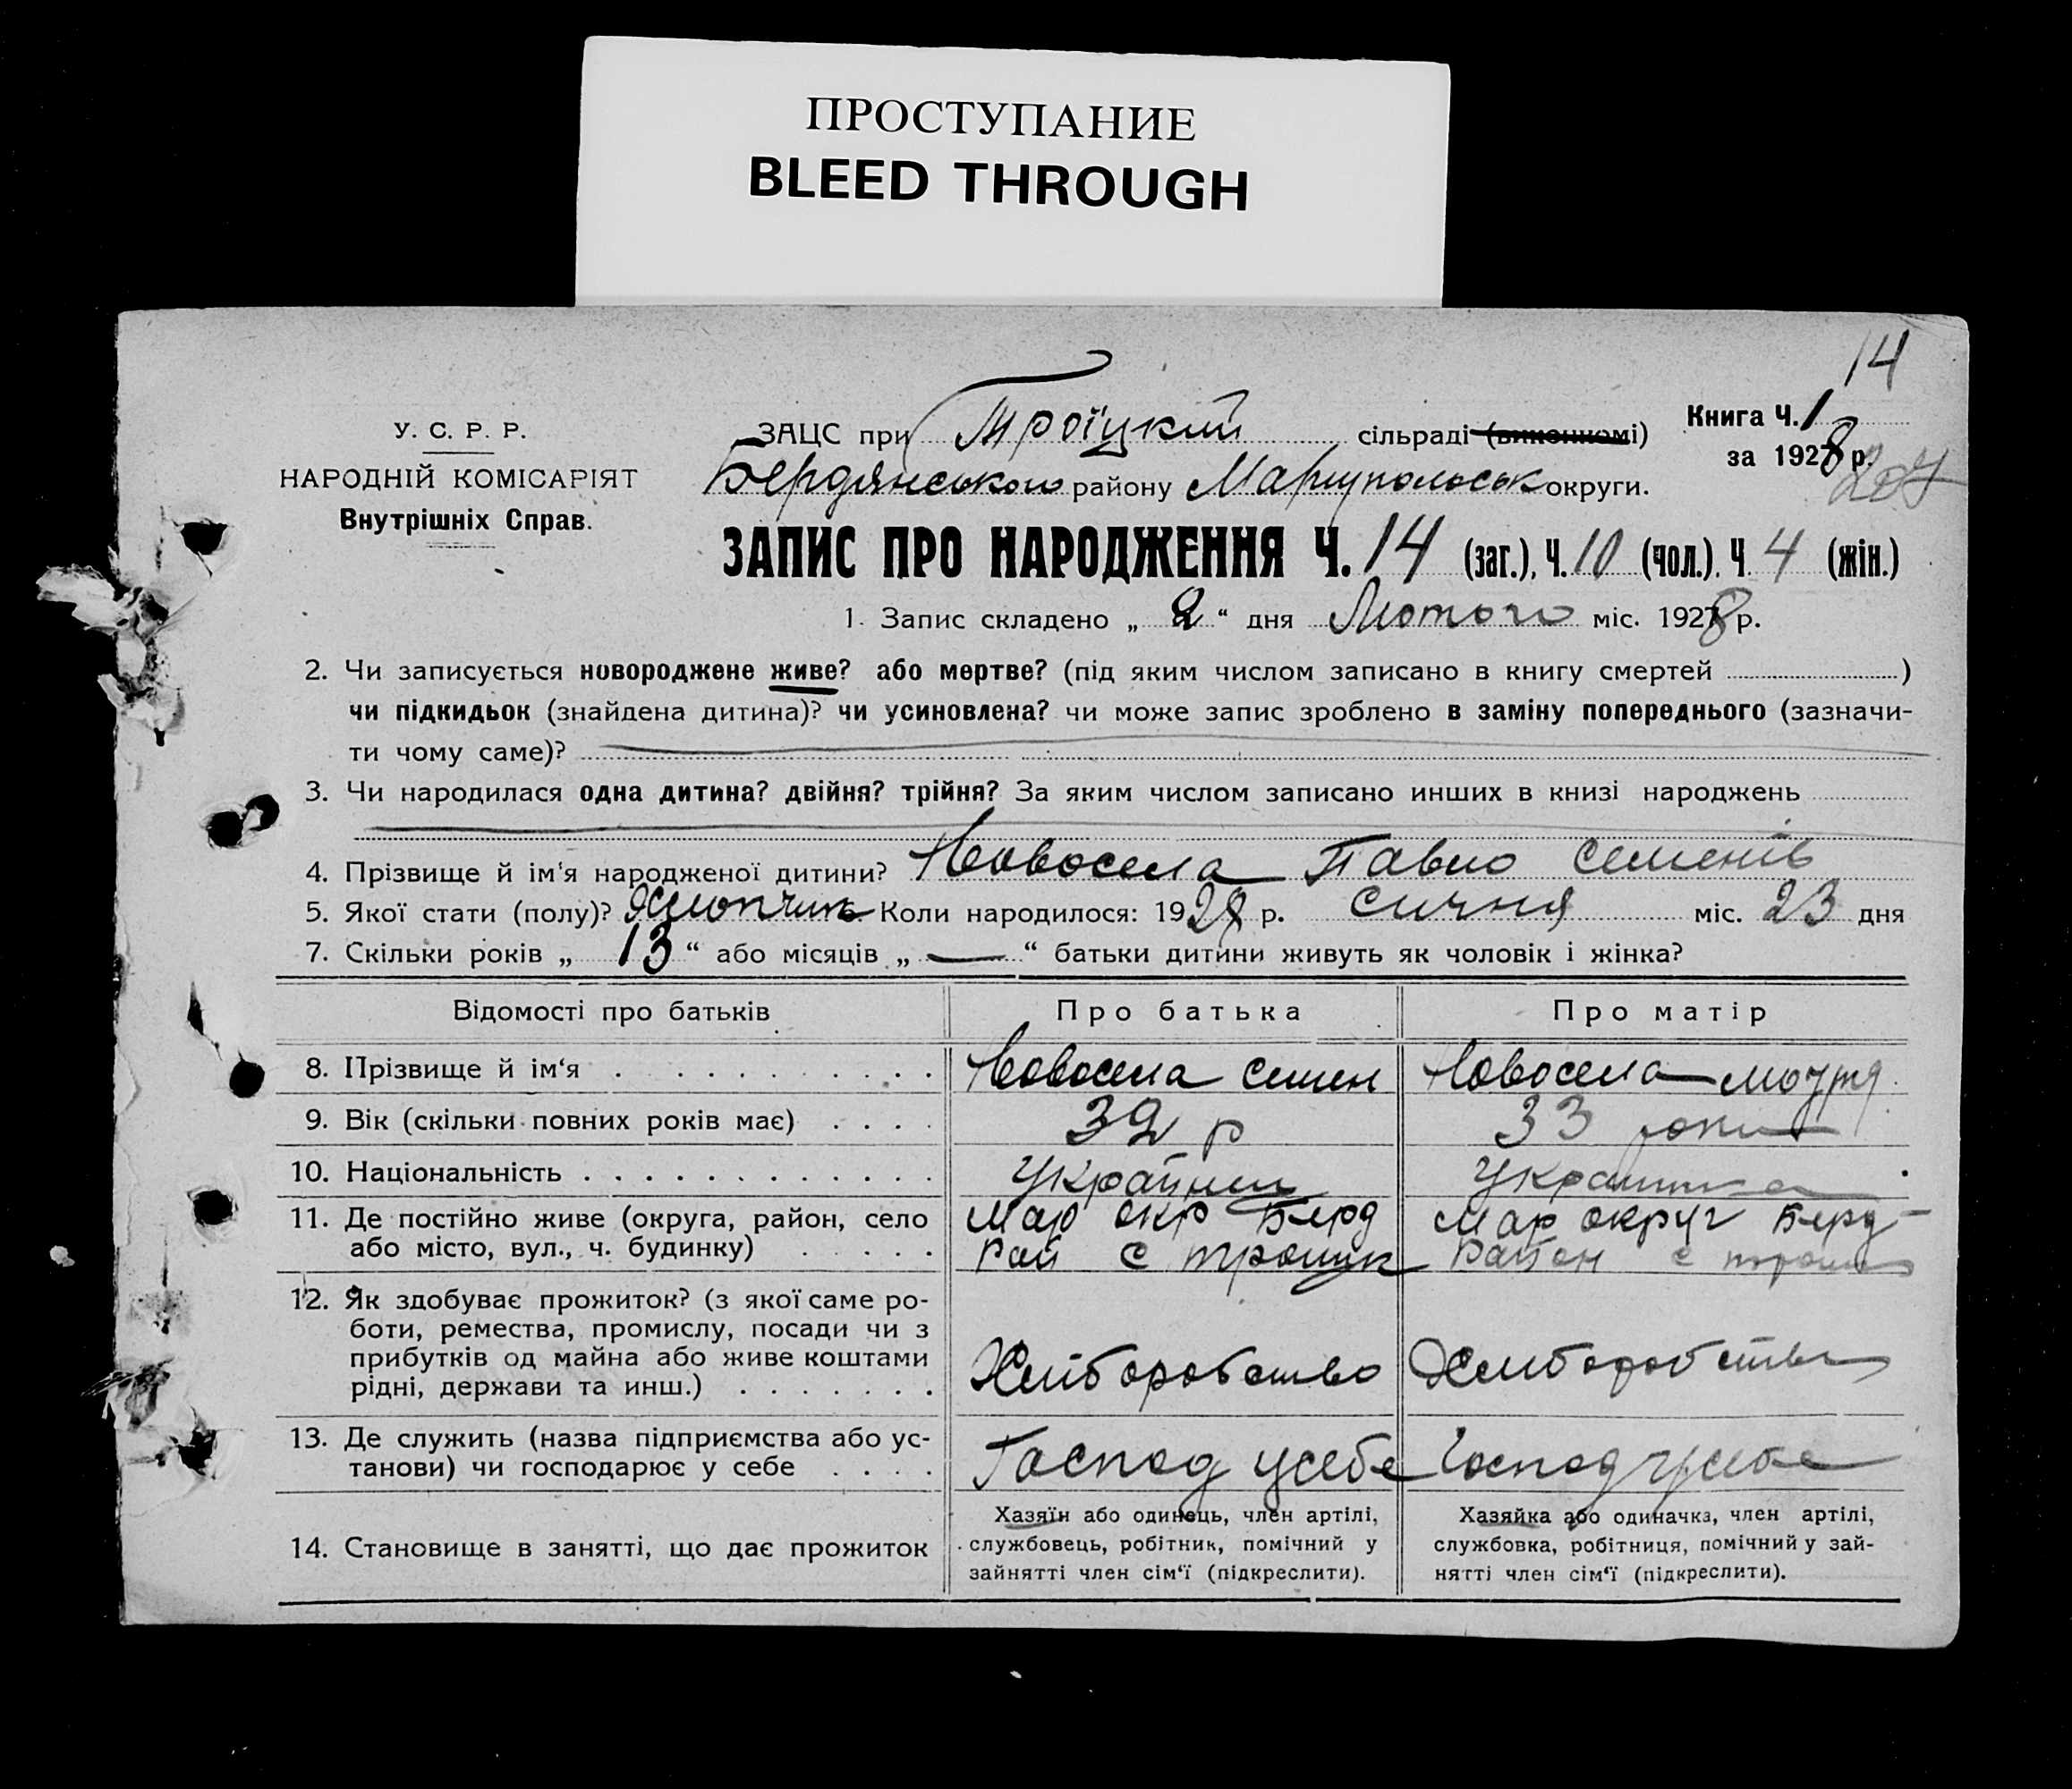 ПРОСТУПАНИЕ
BLEED THROUGH
14
У. С. Р. Р.
НАРОДНІЙ КОМІСАРІЯТ
Внутрішніх Справ.
ЗАЦС при Троїцкий сільраді (виконкомі)
Бердянського району Маріупольськ округи.
Книга Ч. 1
за 1928 р.
207
ЗАПИС ПРО НАРОДЖЕННЯ Ч. 14 (заг.), Ч. 10 (чол.). Ч. 4 (жін.)
1. Запис складено „ 2 “ дня Лютого міс. 1928 р.
2. Чи записується новороджене живе? або мертве? (під яким числом записано в книгу смертей )
чи підкидьок (знайдена дитина)? чи усиновлена? чи може запис зроблено в заміну попереднього (зазначи-
ти чому саме)?
3. Чи народилася одна дитина? двійня? трійня? За яким числом записано инших в книзі народжень
4. Прізвище й ім'я народженої дитини? Новосела Павло Семенів
5. Якої стати (полу)? Хлопчик Коли народилося: 1928 р. Сичня міс. 23 дня
7. Скільки років „ 13 “ або місяців „ — “ батьки дитини живуть як чоловік і жінка?
Відомості про батьків Про батька Про матір
8. Прізвище й ім‘я Новосела Семен Новосела
9. Вік (скільки повних років має) 32 р 33 роки
10. Національність Українець Украінка
11. Де постійно живе (округа, район, село Мар окр Берд Мар округ Берд
або місто, вул., ч. будинку) Рай с Троицк Район с
12. Як здобуває прожиток? (з якої саме ро-
боти, ремества, промислу, посади чи з
прибутків од майна або живе коштами
рідні, держави та инш.) Хліборобство Хліборобство
13. Де служить (назва підприємства або ус-
танови) чи господарює у себе Господ усебе Господ усебе
14. Становище в занятті, що дає прожиток
Хазяїн або одинець, член артілі,
службовець, робітник, помічний у
зайнятті член сім‘ї (підкреслити).
Хазяйка або одиначка, член артілі,
службовка, робітниця, помічний у зай-
нятті член сім‘ї (підкреслити).